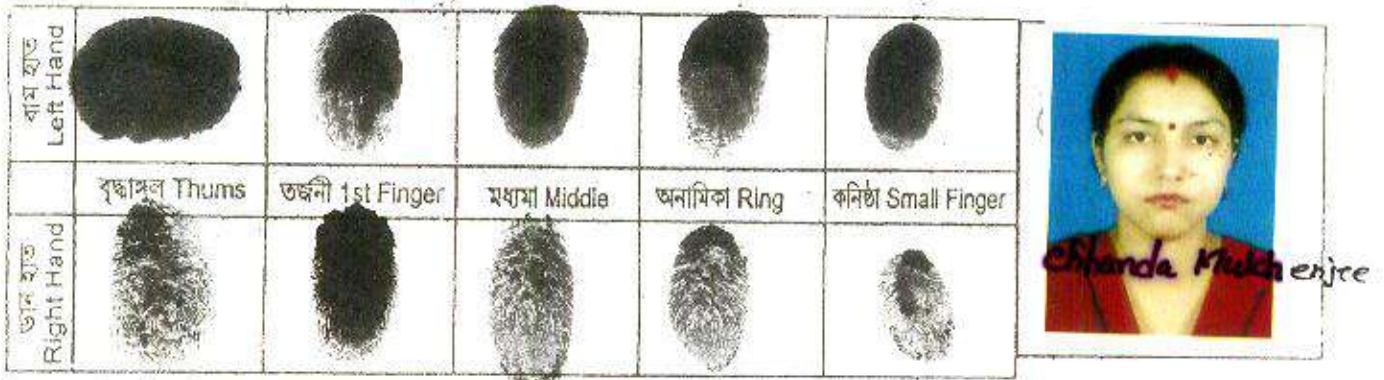 বাম হাত
Left Hand
বৃদ্ধাঙ্গুল Thums
তর্জনী 1st Finger
মধ্যমা Middle
অনামিকা Ring
কনিষ্ঠা Small Finger
ডান হাত
Right Hand
Chhanda Mukhenjee